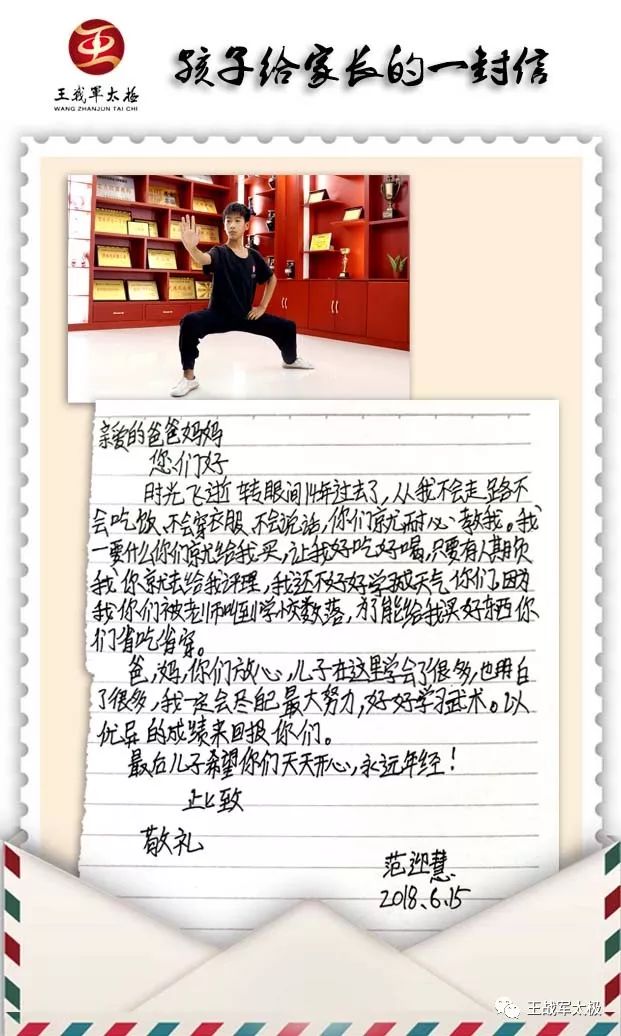 王战军太极
WANG ZHANJUN TAI CHI
孩子给家长的一封信
亲爱的爸爸妈妈
您们好
时光飞逝 转眼间14年过去了,从我不会走路不
会吃饭、不会穿衣服、不会说话,你们就耐心教我。我
一要什么你们就给我买,让我好吃好喝,只要有人期负
我 你就去给我评理,我还不好好学 成天气你们,因为
我 你们被老师叫到学校数落,为了能给我买好东西你
们省吃省穿。
爸,妈,你们放心,儿子在这里学会了很多,也明白
了很多,我一定会尽自己最大努力,好好学习武术。以
优异的成绩来回报你们。
最后儿子希望你们天天开心,永远年经!
此致
敬礼
范迎慧
2018.6.15
王战军太极